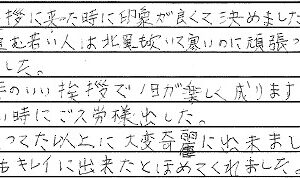 挨拶に来た時に印象が良くて決めました
若い人は北風吹いて寒いのに頑張っ
した。
のいい挨拶で1日が楽しく成ります
い時にご苦労様出した。
ってた以上に大変奇麗に出来まし
もキレイに出来たとほめてくれました。